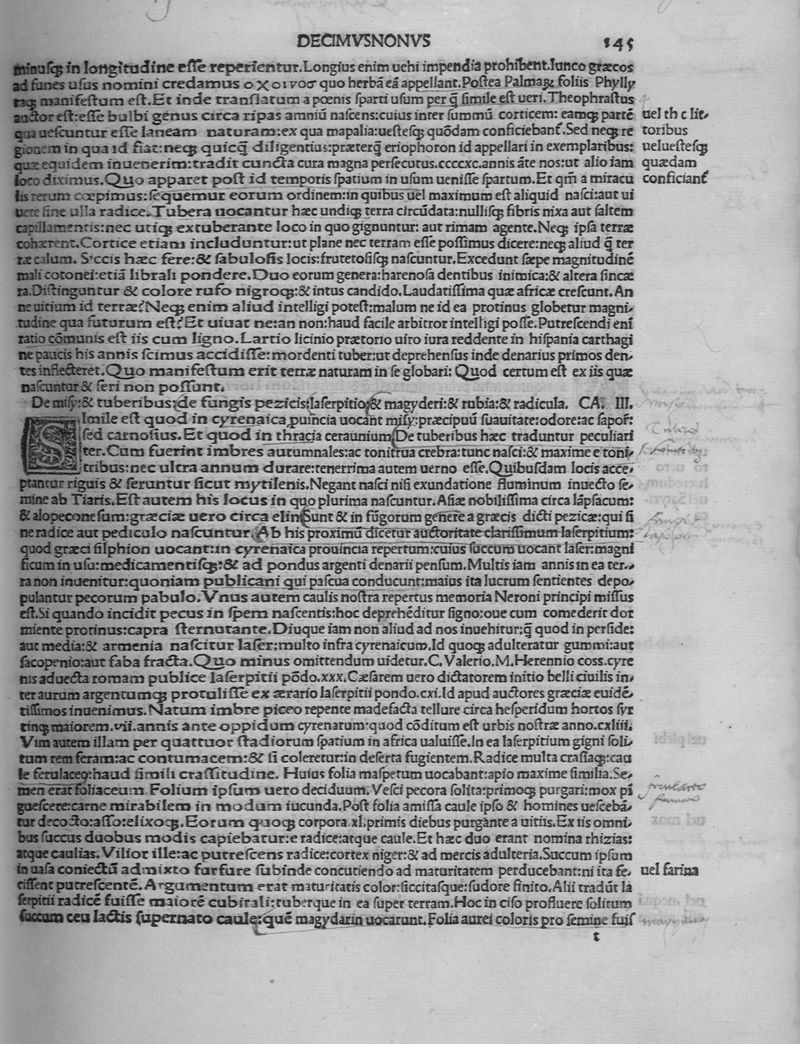 DECIMVSNONVS 145
minusq; in longitudine esse reperientur. Longius enim uehi impendia prohibent. Iunco græcos
ad funes usus nomini credamus quo herbā eā appellant. Postea Palmaꝝ foliis Phylly
raq; manifestum est. Et inde translatum a poenis sparti usum per q̄ simile est ueri. Theophrastus
auctor est: esse bulbi genus circa ripas amniū nascens: cuius inter summū corticem: eamq; partē
uel th c lit
qua uescuntur esse laneam naturam: ex qua mapalia: uestesq; quōdam conficiebant̄. Sed neq; re
toribus
gionem in qua id fiat: neq; quicq̄ diligentius: præterq̄ eriophoron id appellari in exemplaribus:
ueluestesq;
quæ equidem inuenerim: tradit cuncta cura magna persecutus. ccccxc. annis āte nos: ut alio iam
quædam
loco diximus. Quo apparet post id temporis spatium in usum uenisse spartum. Et qm̄ a miracu
conficiant̄
lis rerum cœpimus: sequemur eorum ordinem: in quibus uel maximum est aliquid nasci: aut ui
uere sine ulla radice. Tubera uocantur hæc undiq; terra circūdata: nullisq; fibris nixa aut saltem
capillamentis: nec utiq; extuberante loco in quo gignuntur: aut rimam agente. Neq; ipsa terræ
cohærent. Cortice etiam includuntur: ut plane nec terram esse possimus dicere: neq; aliud q̄ ter
ræ calum. Siccis hæc fere: & sabulosis locis: frutetosisq; nascuntur. Excedunt sæpe magnitudinē
mali cotonei: etiā librali pondere. Duo eorum genera: harenosa dentibus inimica: & altera sincæ
ra. Distinguntur & colore rufo nigroq;: & intus candido. Laudatissima quæ africæ crescunt. An
ne uitium id terræ? Neq; enim aliud intelligi potest: malum ne id ea protinus globetur magni-
tudine qua futurum est? Et uiuat ne: an non: haud facile arbitror intelligi posse. Putrescendi enī
ratio cōmunis est iis cum ligno. Lartio licinio prætorio uiro iura reddente in hispania carthagi
ne paucis his annis scimus accidisse: mordenti tuber: ut deprehensus inde denarius primos den-
tes inflecteret. Quo manifestum erit terræ naturam in se globari: Quod certum est ex iis quæ
nascuntur & seri non possunt.
De misy: & tuberibus: de fungis pezicis: laserpitio & magyderi: & rubia: & radicula. CA. III.
Simile est quod in cyrenaica puincia uocant misy: præcipuū suauitate: odore: ac sapor̄:
sed carnosius. Et quod in thracia ceraunium. De tuberibus hæc traduntur peculiari
ter. Cum fuerint imbres autumnales: ac tonitrua crebra: tunc nasci: & maxime e toni-
tribus: nec ultra annum durare: tenerrima autem uerno esse. Quibusdam locis acce-
ptantur riguis & feruntur sicut mytilenis. Negant nasci nisi exundatione fluminum inuecto se-
mine ab Tiaris. Est autem his locus in quo plurima nascuntur. Asiæ nobilissima circa lāpsacum:
& alopeconesum: græciæ uero circa elin. Sunt & in fūgorum genere a græcis dicti pezicæ: qui si
ne radice aut pediculo nascuntur. Ab his proximū dicetur auctoritate clarissimum laserpitium:
quod græci silphion uocant: in cyrenaica prouincia repertum: cuius succum uocant laser: magni
ficum in usu: medicamentisq;: & ad pondus argenti denarii pensum. Multis iam annis in ea ter-
ra non inuenitur: quoniam publicani qui pascua conducunt: maius ita lucrum sentientes depo-
pulantur pecorum pabulo. Vnus autem caulis nostra repertus memoria Neroni principi missus
est. Si quando incidit pecus in spem nascentis: hoc deprehēditur signo: oue cum comederit dor
miente protinus: capra sternutante. Diuque iam non aliud ad nos inuehitur: q̄ quod in perside:
aut media: & armenia nascitur laser: multo infra cyrenaicum. Id quoq; adulteratur gummi: aut
sacopenio: aut faba fracta. Quo minus omittendum uidetur. C. Valerio. M. Herennio coss. cyre
nis aduecta romam publice laserpitii pōdo. xxx. Cæsarem uero dictatorem initio belli ciuilis in-
ter aurum argentumq; protulisse ex ærario laserpitii pondo. cxi. Id apud auctores græciæ euidē-
tissimos inuenimus. Natum imbre piceo repente madefacta tellure circa hesperidum hortos syr
tinq; maiorem. vii. annis ante oppidum cyrenarum: quod cōditum est urbis nostræ anno. cxliii.
Vim autem illam per quattuor stadiorum spatium in africa ualuisse. In ea laserpitium gigni soli-
tum rem feram: ac contumacem: & si coleretur: in deserta fugientem. Radice multa crassaq;: cau
le ferulaceo: haud simili crassitudine. Huius folia maspetum uocabant: apio maxime similia. Se-
men erat foliaceum. Folium ipsum uero deciduum. Vesci pecora solita: primoq; purgari: mox pī
guescere: carne mirabilem in modum iucunda. Post folia amissa caule ipso & homines uescebā-
tur decocto: asso: elixoq;. Eorum quoq; corpora. xl. primis diebus purgante a uitiis. Ex iis omni-
bus succus duobus modis capiebatur: e radice: atque caule. Et hæc duo erant nomina rhizias:
atque caulias. Vilior ille: ac putrescens radice: cortex niger: & ad mercis adulteria. Succum ipsum
in uasa coniectū admixto furfure subinde concutiendo ad maturitatem perducebant: ni ita fe-
uel farina
cissent putrescentē. Argumentum erat maturitatis color: siccitasque: sudore finito. Alii tradūt la
serpitii radicē fuisse maiorē cubitali: tuberque in ea super terram. Hoc in ciso profluere solitum
succum ceu lactis supernato caule: quē magydarin uocarunt. Folia aurei coloris pro semine fuis
t